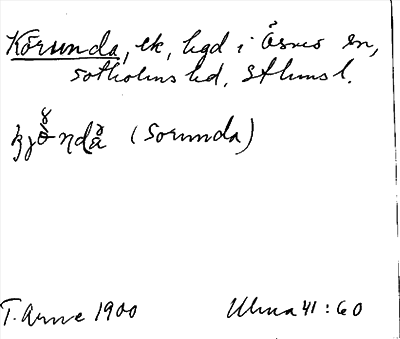 Körunda, ek, hgd i Ösmo sn,
Sotholms hd, Sthms l.
(Sorunda)
T. Arne 1900 Ulma 41:60